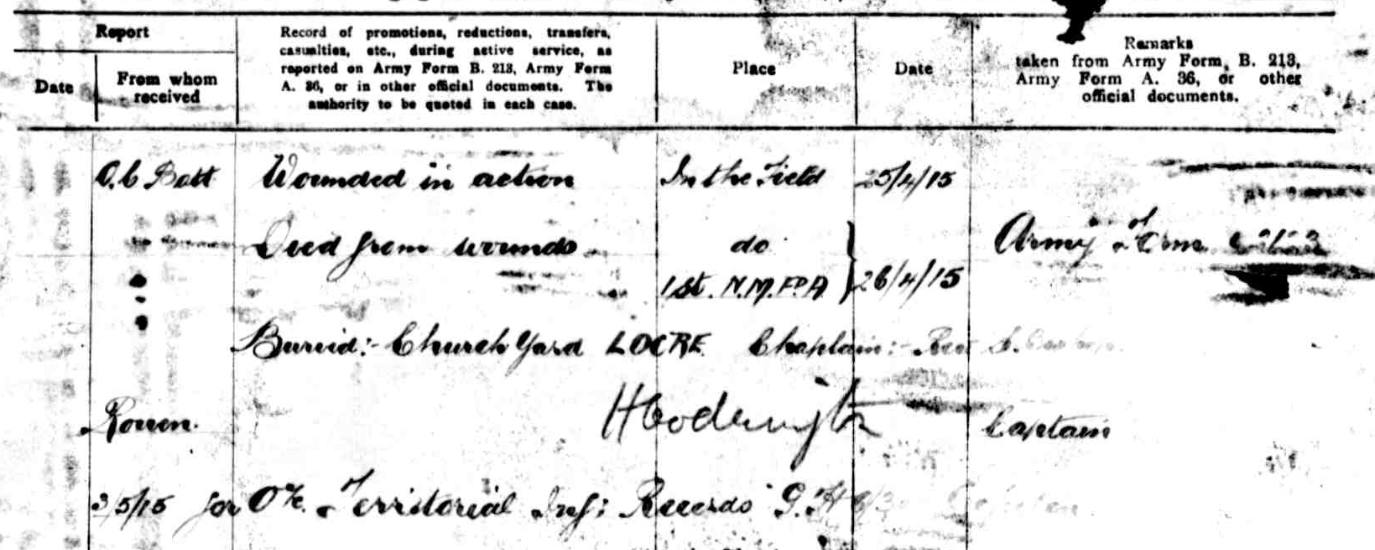 Report
Date
From whom
received
Record of promotions, reductions, transfers,
casualties, etc., during active service, as
reported on Army Form B. 213, Army Form
A. 36, or in other official documents. The
authority to be quoted in each case.
Place
Date
Remarks
taken from Army Form, B. 213,
Army Form A. 36, or other
official documents.
O.C Batt Wounded in action In the Field 25/4/15
Died from wounds do Army Form
1st. N.M.F.A 26/4/15
Buried:- Church Yard LOCRE Chaplain:- Rev
Rouen. Captain
3/5/15 for O i/c Territorial Inf: Records G.H